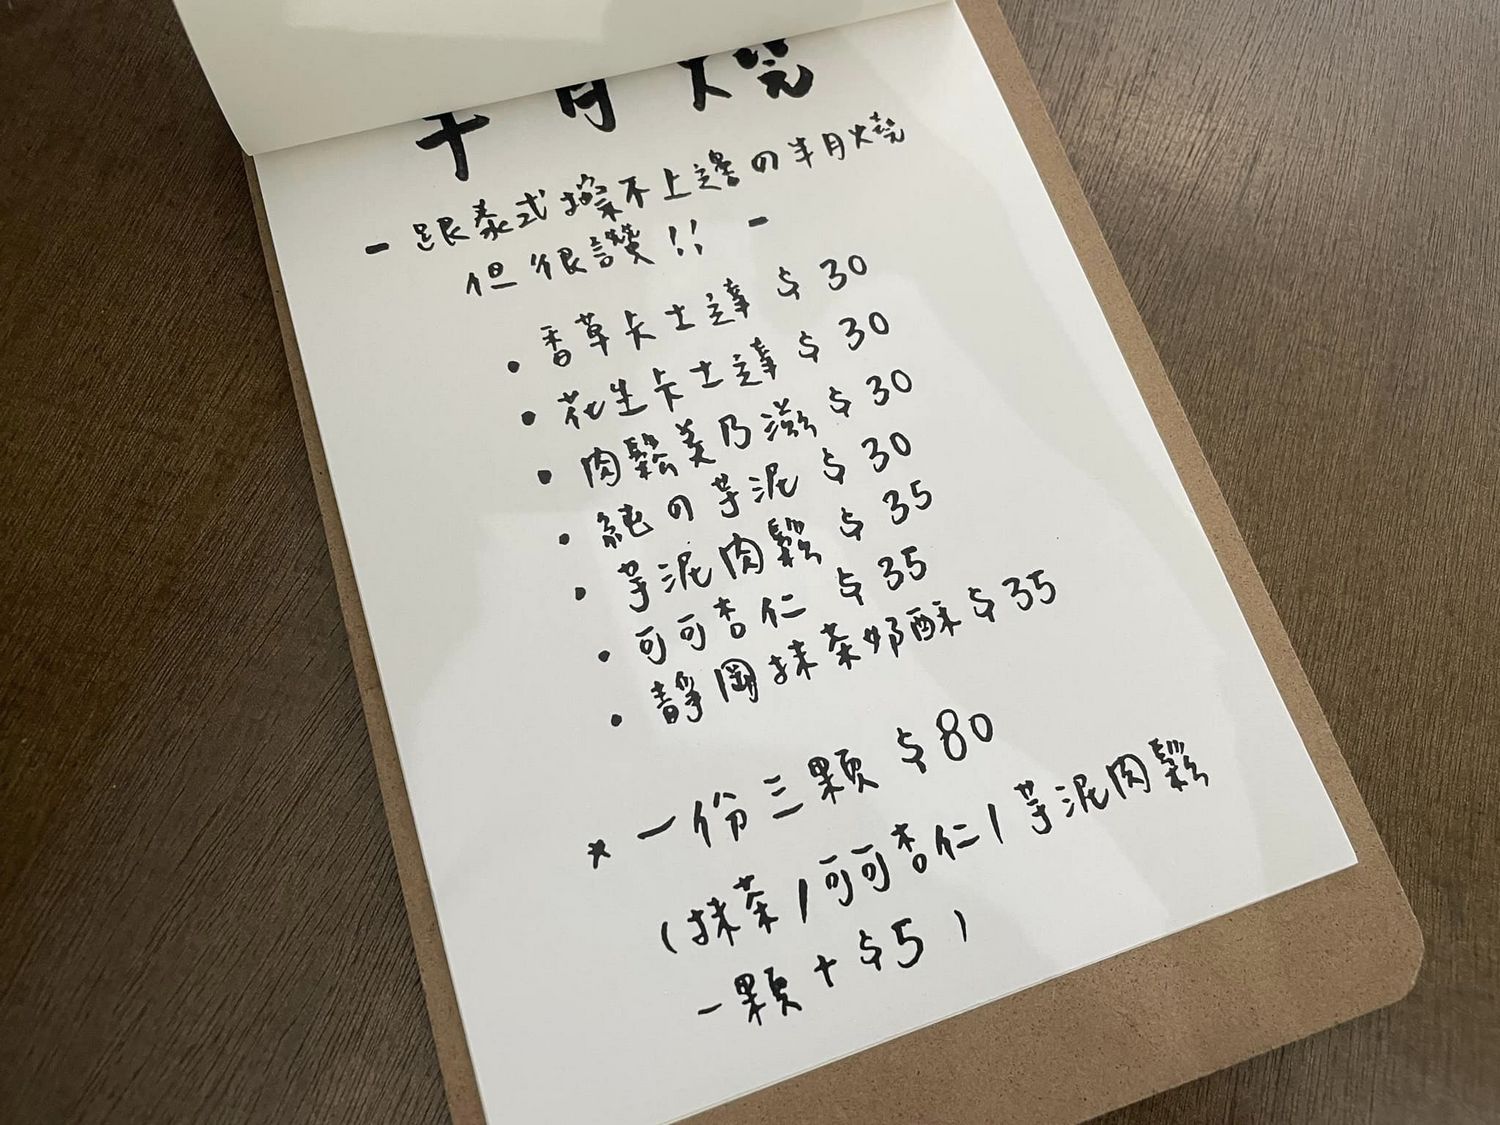 半月燒
- 跟泰式擦不上邊の半月燒
但很讚!! -
• 香草卡士達 $30
• 花生卡士達 $30
• 肉鬆美乃滋 $30
• 純の芋泥 $30
• 芋泥肉鬆 $35
• 可可杏仁 $35
• 靜岡抹茶奶酥 $35
* 一份三顆 $80
(抹茶/可可杏仁/芋泥肉鬆
一顆+$5)